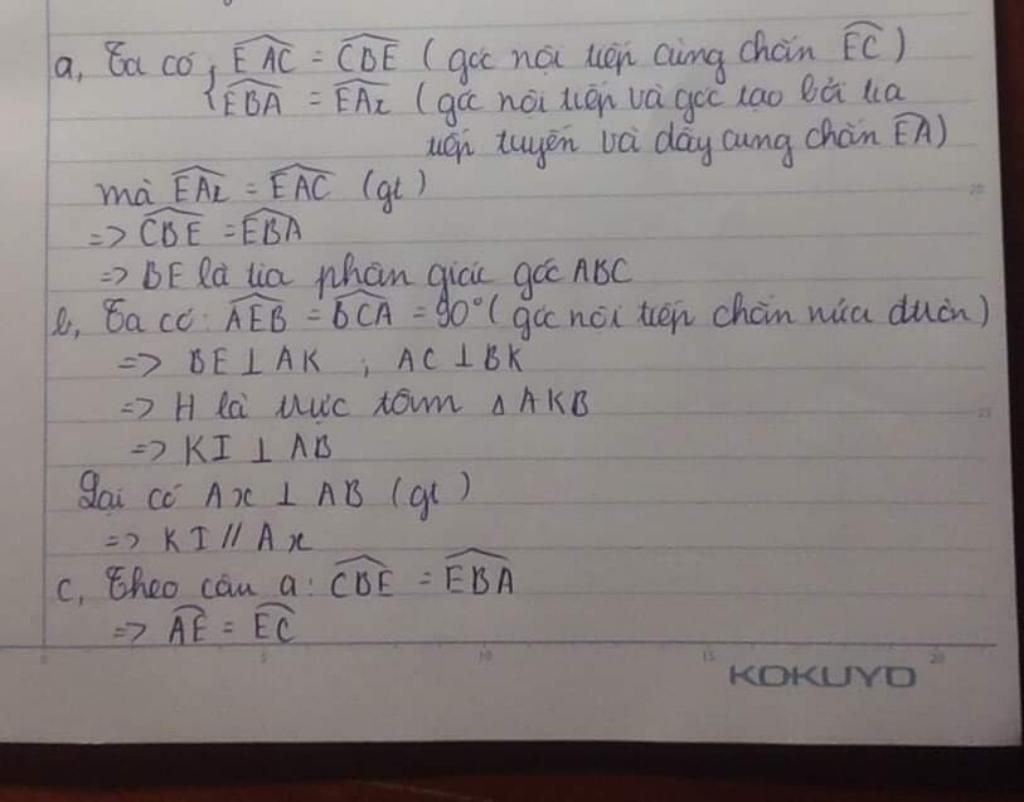 a, Ta có { EAC = CBE (góc nội tiếp cùng chắn EC)
EBA = EAx (góc nội tiếp và góc tạo bởi tia
tiếp tuyến và dây cung chắn EA)
mà EAx = EAC (gt)
=> CBE = EBA
=> BE là tia phân giác góc ABC
b, Ta có: AEB = BCA = 90° (góc nội tiếp chắn nửa đường)
=> BE ⊥ AK , AC ⊥ BK
=> H là trực tâm Δ AKB
=> KI ⊥ AB
Lại có Ax ⊥ AB (gt)
=> KI // Ax
c, Theo câu a: CBE = EBA
=> AE = EC
5 10 15 20
KOKUYO